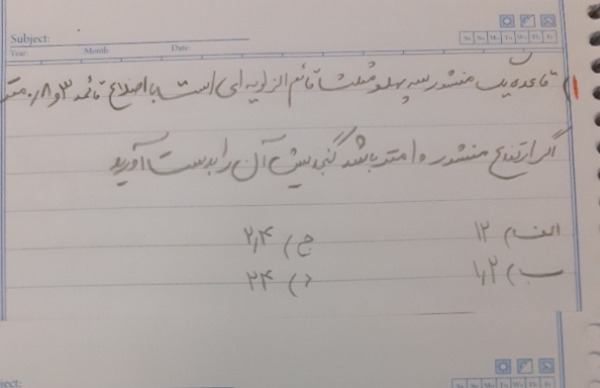 Subject:
Year: Month: Date:
Sa Su Mo Tu We Th Fr
۱) قاعده یک منشور سه پهلو مثلث قائم الزاویه ای است با اضلاع قائمه ۳ و ۰٫۸ متر
اگر ارتفاع منشور ۱۰ متر باشد گنجایش آن را بدست آورید
الف) ۱۲ ج) ۲٫۴
ب) ۱٫۲ د) ۲۴
ject:
Sa Su Mo Tu We Th Fr